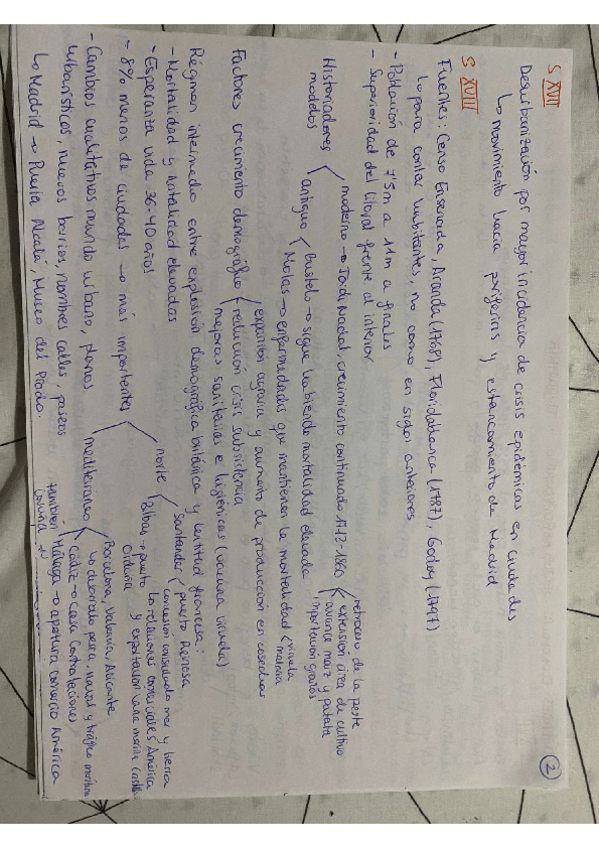 2
S XVII
Desurbanización por mayor incidencia de crisis epidémicas en ciudades
↳ movimiento hacia periferias y estancamiento de Madrid
S XVIII
Fuentes: Censo Ensenada, Aranda (1768), Floridablanca (1787), Godoy (1797)
↳ para contar habitantes, no como en siglos anteriores
- Población de 7'5m a 11m a finales
- Superioridad del litoral frente al interior
Historiadores modelos
moderno → Jordi Nadal, crecimiento continuado 1712-1860
retroceso de la peste
extensión área de cultivo
avance maíz y patata
importación granos
antiguo
Bustelo → sigue habiendo mortalidad elevada
Molas → enfermedades que mantienen la mortalidad
viruela
malaria
Factores crecimiento demográfico
expansión agraria y aumento de producción en cosechas
reducción crisis subsistencia
mejoras sanitarias e higiénicas (vacuna viruela)
Régimen intermedio entre explosión demográfica británica y lentitud francesa:
- Mortalidad y natalidad elevadas
- Esperanza vida 36-40 años
- 8% menos de ciudades → más importantes
norte
Santander
puerto Reinosa
conexión interior mar y tierra
Bilbao → puerto
↳ relaciones comerciales América
Orduña y exportación lana merina
mediterráneo
Barcelona, Valencia, Alicante
↳ desarrollo pesca, naval y tráfico
Cádiz → Casa Contrataciones
también Málaga → apertura comercio América
Coruña
- Cambios cualitativos mundo urbano, planos
urbanísticos, nuevos barrios, nombres calles, paseos
↳ Madrid → Puerta Alcalá, Museo del Prado.